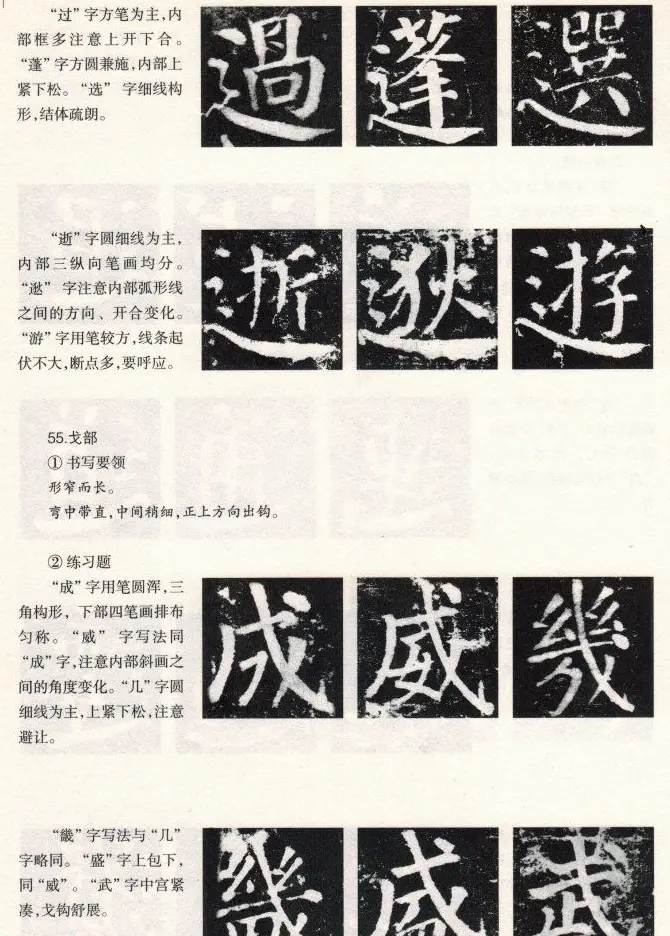 “过”字方笔为主,内
部框多注意上开下合。
“蓬”字方圆兼施,内部上
紧下松。“选” 字细线构
形,结体疏朗。
過 蓬 選
“逝”字圆细线为主,
内部三纵向笔画均分。
“逖” 字注意内部弧形线
之间的方向、开合变化。
“游”字用笔较方,线条起
伏不大,断点多,要呼应。
逝 逖 遊
55.戈部
① 书写要领
形窄而长。
弯中带直,中间稍细,正上方向出钩。
② 练习题
“成”字用笔圆浑,三
角构形, 下部四笔画排布
匀称。“威” 字写法同
“成”字,注意内部斜画之
间的角度变化。“几”字圆
细线为主,上紧下松,注意
避让。
成 威 幾
“畿”字写法与“几”
字略同。“盛”字上包下,
同“威”。“武”字中宫紧
凑,戈钩舒展。
畿 盛 武